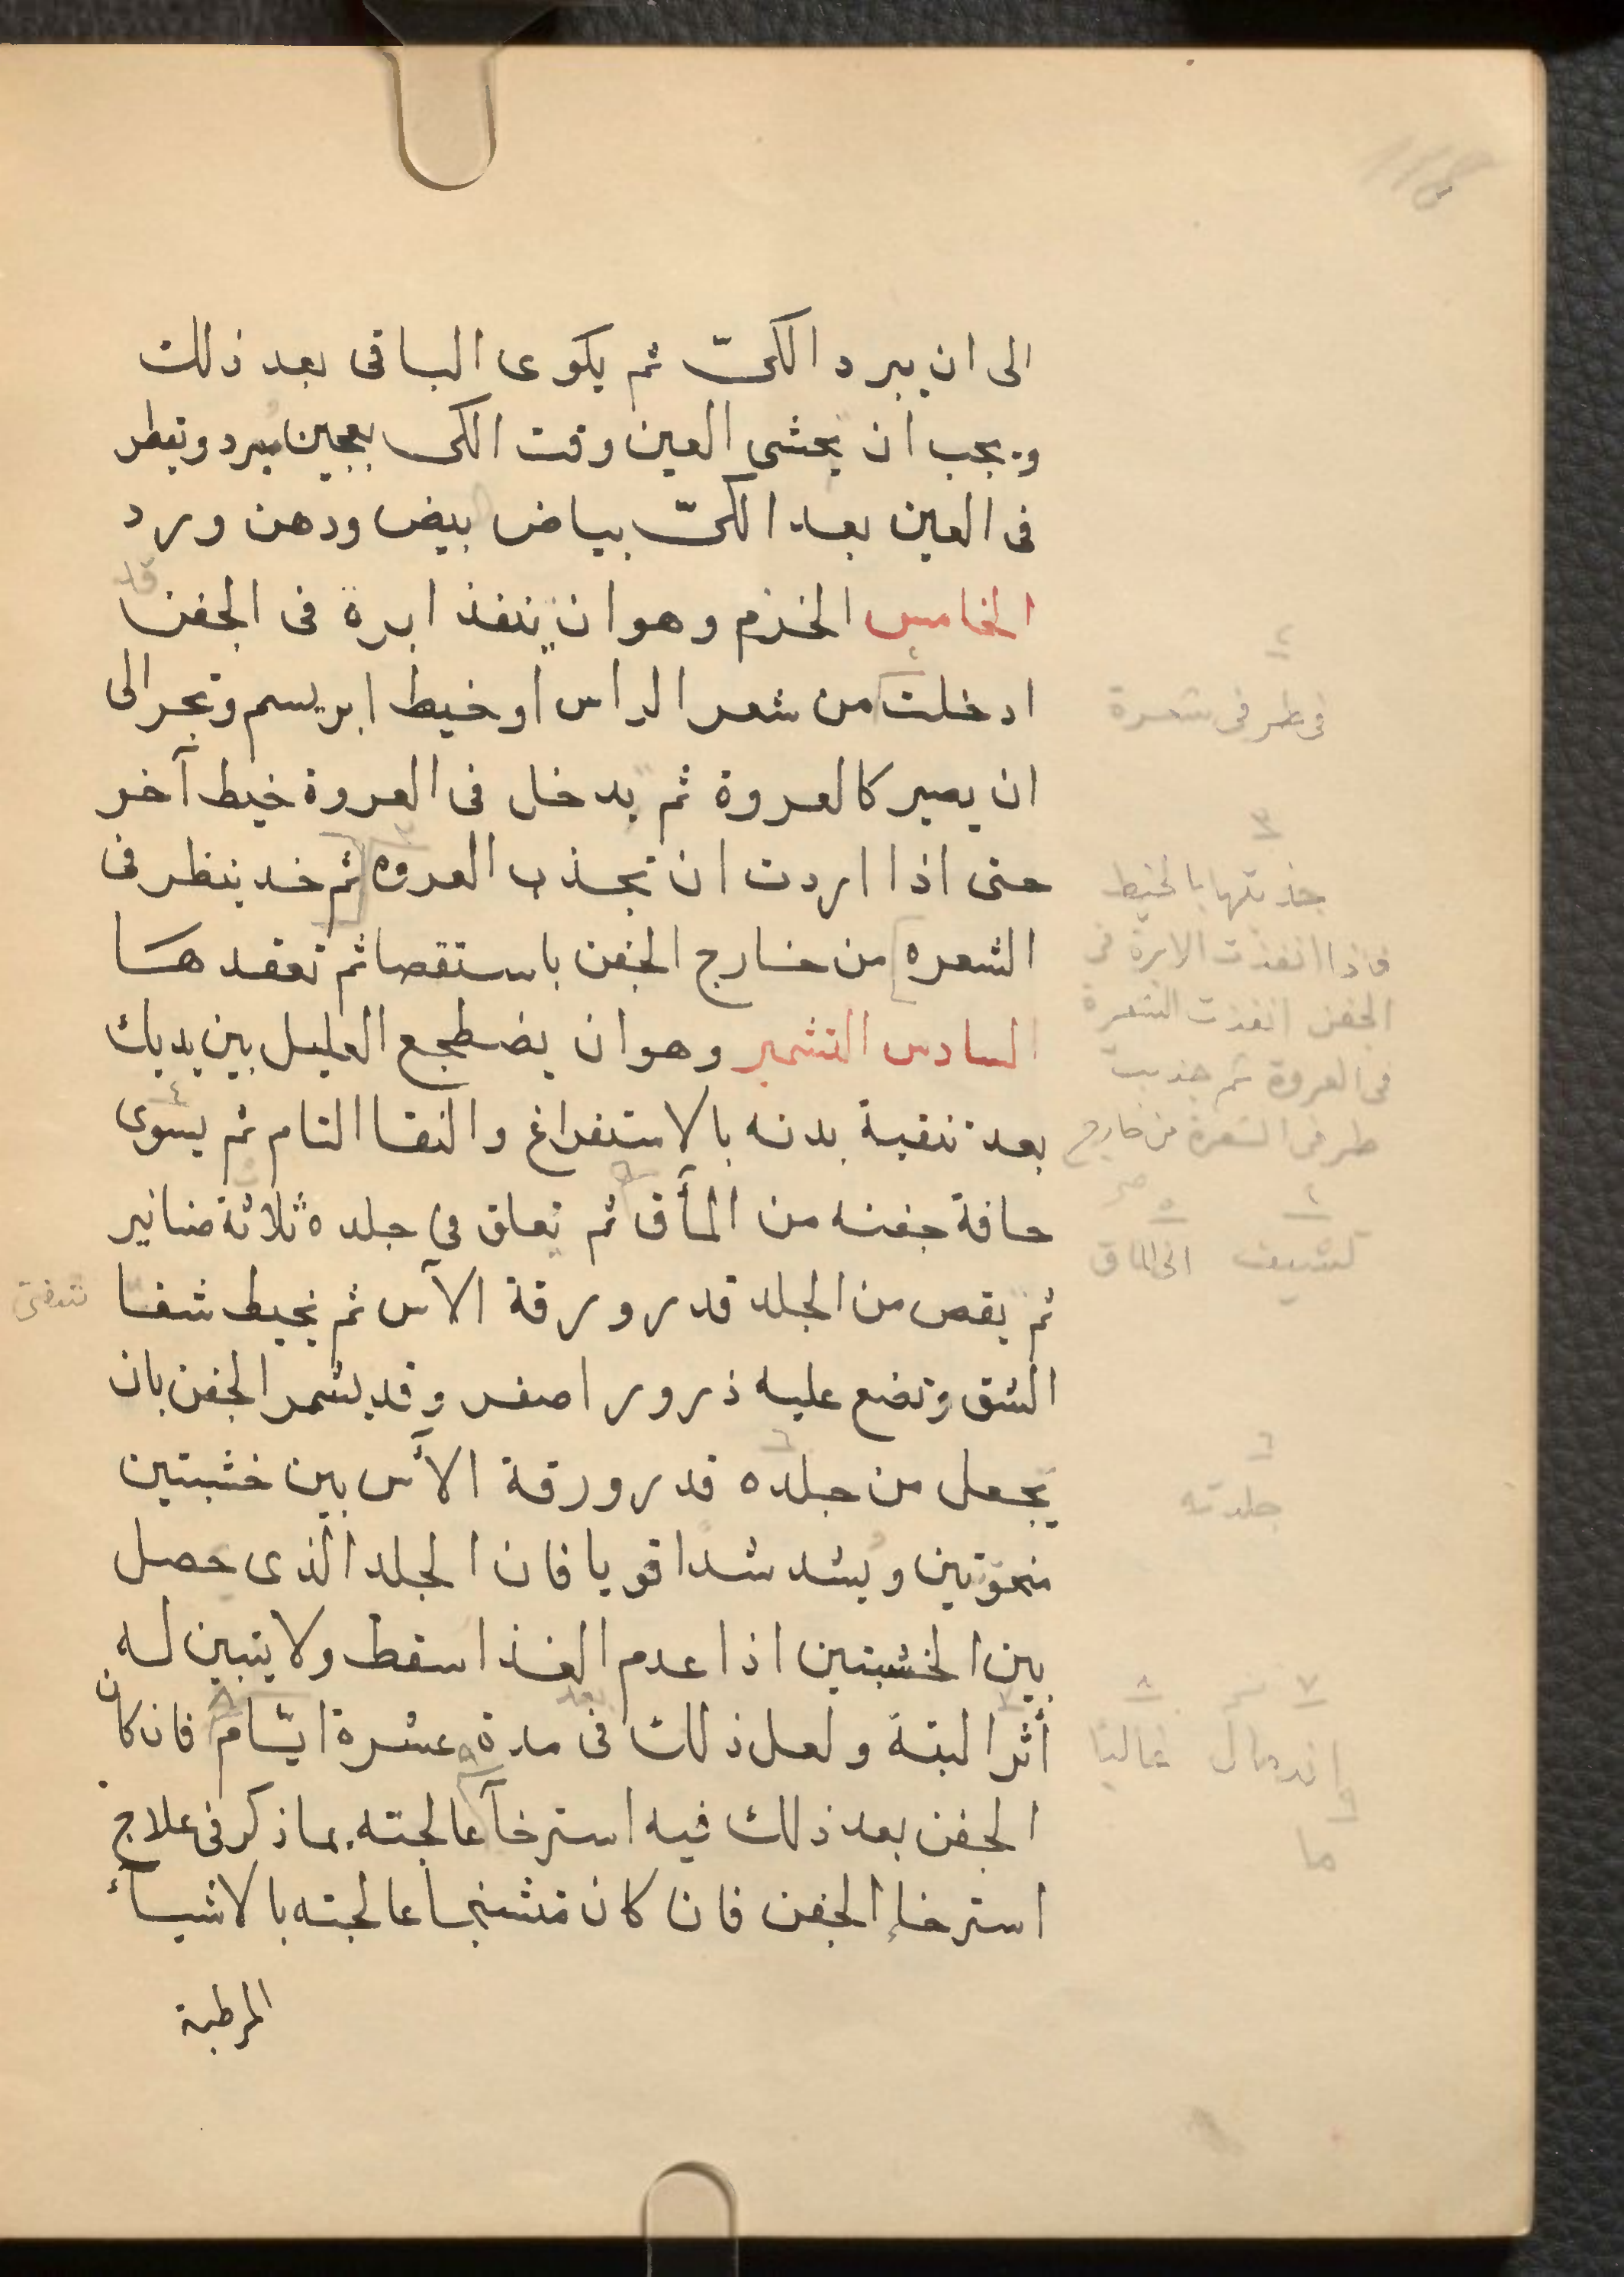 الى ان يبرد الكىّ ثم يكوى الباقى بعد ذلك
و يجب ان يحشى العين وقت الكى بعجين مبرد وتقطر
فى العين بعد الكىّ بياض بيض ودهن ورد
الخامس الخزم وهو ان ينفذ ابرة فى الجفن قد
ادخلت من شعر الراس او خيط ابريسم وتجر الى
ان يصير كالعروة ثم يدخل فى العروة خيط آخر
حتى اذا اردت ان تجذب العروه ثم خد ينظر فى
الشعره من خارج الجفن باستقصا ثم تعقدها
السادس التشمير وهو ان يضطجع العليل بين يديك
بعد تنقية بدنه بالاستفراغ والنقا التام ثم يسوى
حافة جفنه من المأق ثم تعلق في جلده ثلاثة صنانير
ثم يقص من الجلد قدر ورقة الآس ثم يخيط شفا
الشق وتضع عليه ذرور اصفر وقد يشمر الجفن بان
يجعل من جلده قدر ورقة الآس بين خشبتين
منحوتين ويشد شدا قويا فان الجلد الذى حصل
بين الخشبتين اذا عدم الغذا سقط ولا يتبين له
أثر البتة ولعل ذلك فى مدة عشرة ايّام فان كان
الجفن بعد ذلك فيه استرخآ عالجته بما ذكر فى علاج
استرخاء الجفن فان كان متشنجا عالجته بالاشيآء
المرطبة
٢
فى طرفى شعرة
٣
جذبتها بالخيط
فاذا انفذت الابرة فى
الجفن انفذت الشعرة
فى العروة ثم جذبت
طرفى الشعرة من خارج
٥
الى الماق
شفتى
٦
جلدته
٧ ٨
واندمال غالبا
ما